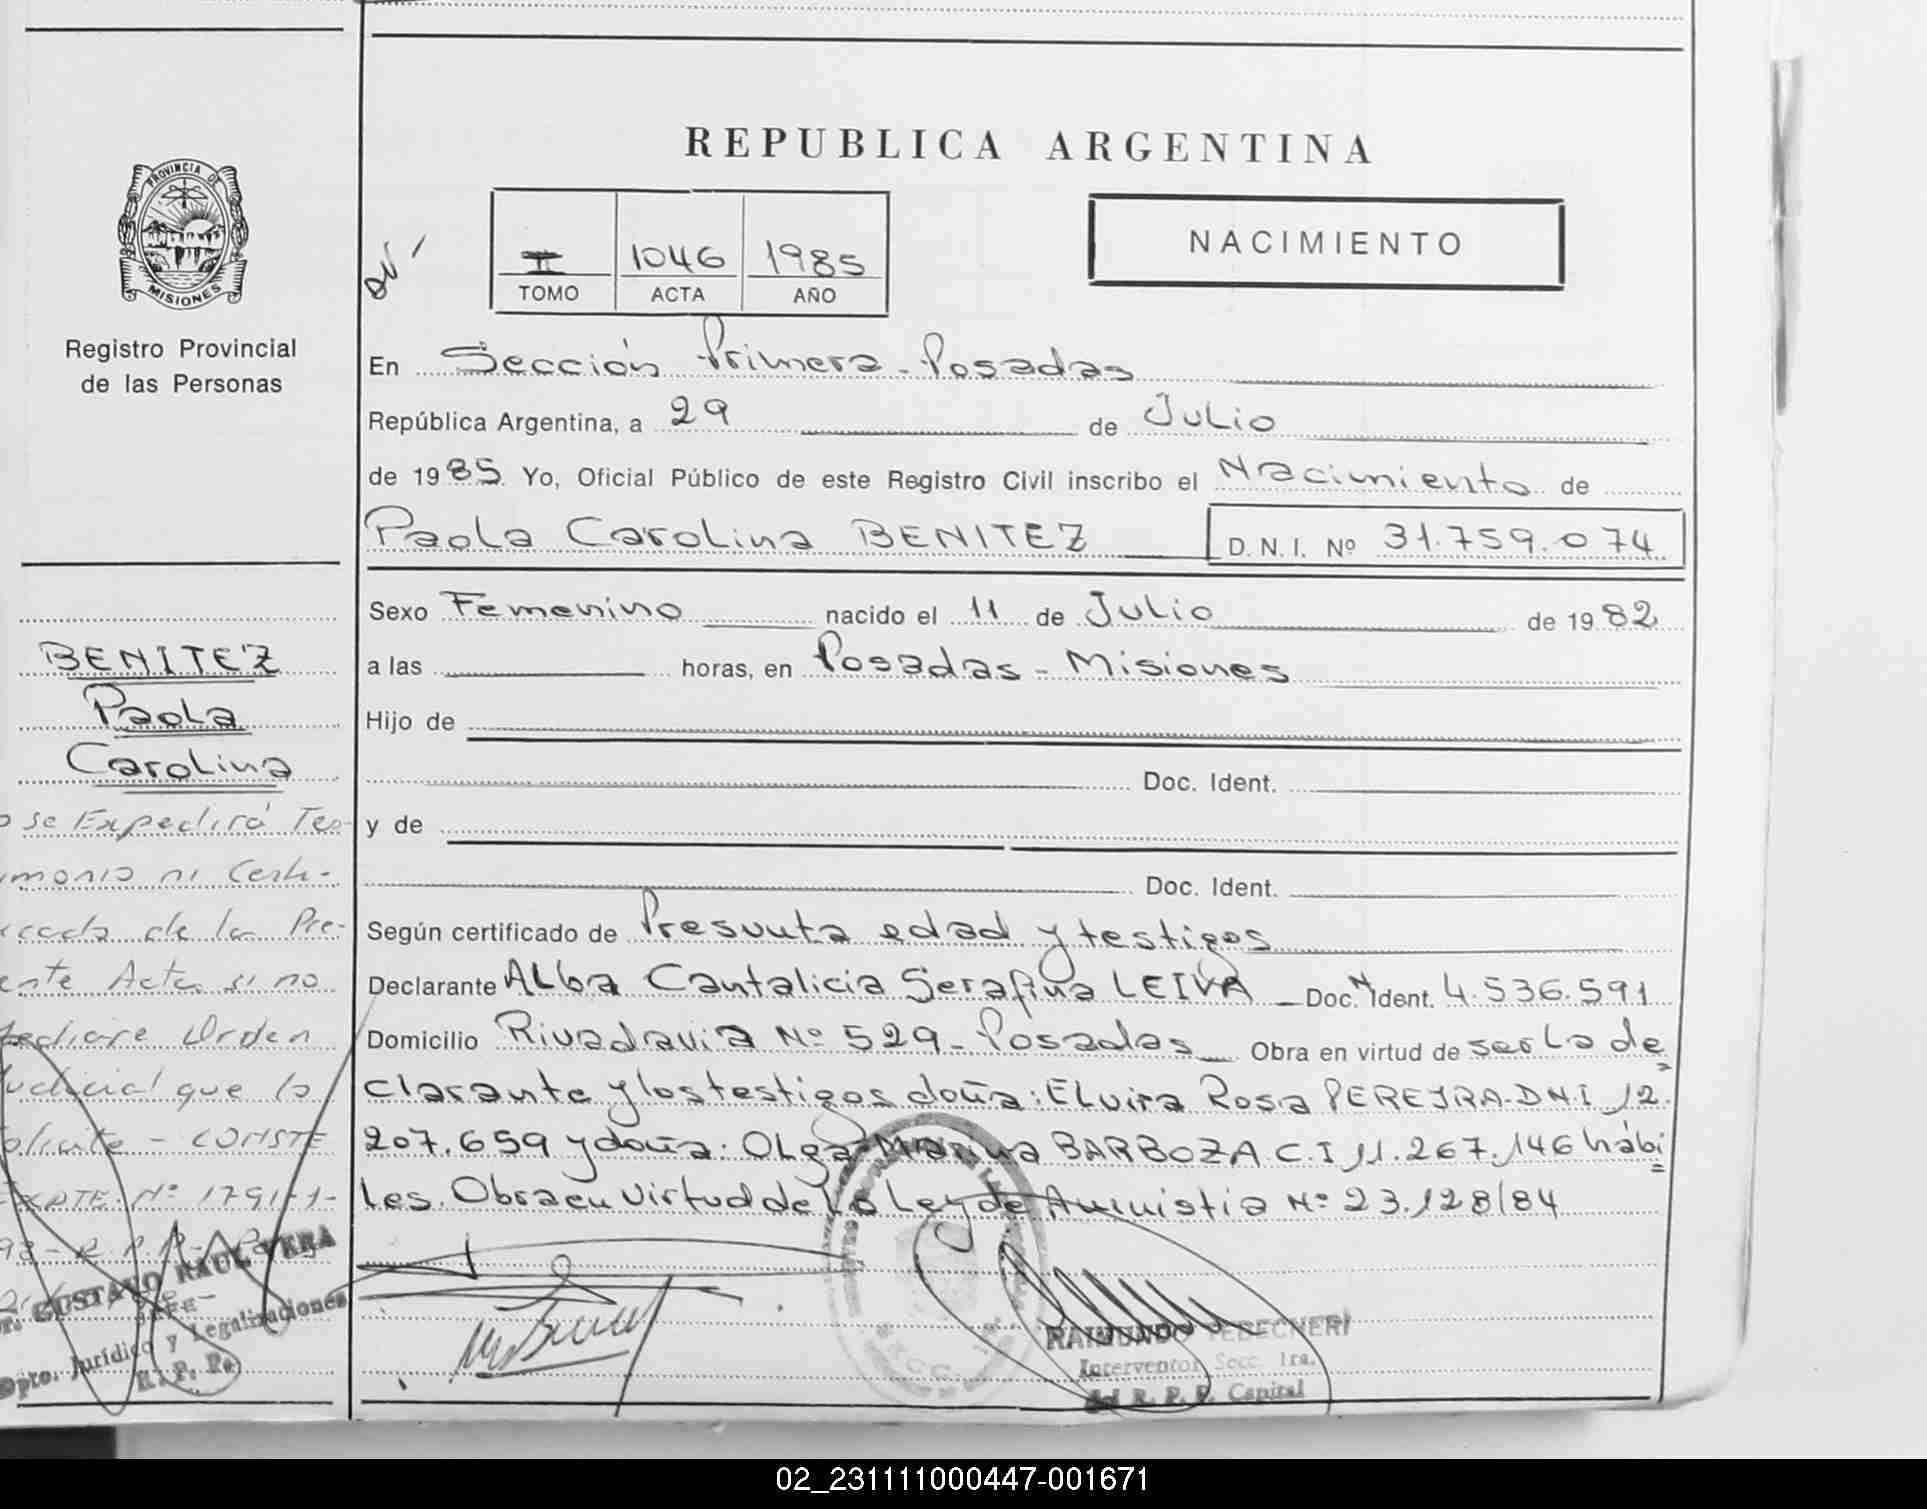 REPUBLICA ARGENTINA
PROVINCIA DE
MISIONES
Registro Provincial
de las Personas
II 1046 1985
TOMO ACTA AÑO
NACIMIENTO
En Sección Primera - Posadas
República Argentina, a 29 de Julio
de 1985 Yo, Oficial Público de este Registro Civil inscribo el Nacimiento de
Paola Carolina BENITEZ D.N.I. Nº 31.759.074
Sexo Femenino nacido el 11 de Julio de 1982
a las horas, en Posadas - Misiones
Hijo de
Doc. Ident.
y de
Doc. Ident.
Según certificado de Presunta edad y testigos
Declarante ALba Cantalicia Serafina LEIVA Doc. Ident. 4.536.591
Domicilio Rivadavia Nº 529 - Posadas Obra en virtud de ser La de
clarante y los testigos doña: ELvira Rosa PEREYRA - DNI 12.
207.659 y doña: OLga Marina BARBOZA C.I 11.267.146 hábi
les. Obra en virtud de La Ley de Amnistia Nº 23.128/84
BENITEZ
Paola
Carolina
se Expedirá Tes-
monio ni Certi-
de la Pre-
ente Acta si no
mediare Orden
udicial que lo
olicite - CONSTE
EXPTE. Nº 1791-1-
98 - R.P.P.
GUSTAVO RAUL VERA
JEFE
Dpto. Jurídico y Legalizaciones
R. P. P.
RAIMUNDO TEBECHERI
Interventor Secc. 1ra.
del R. P. P. Capital
02_231111000447-001671